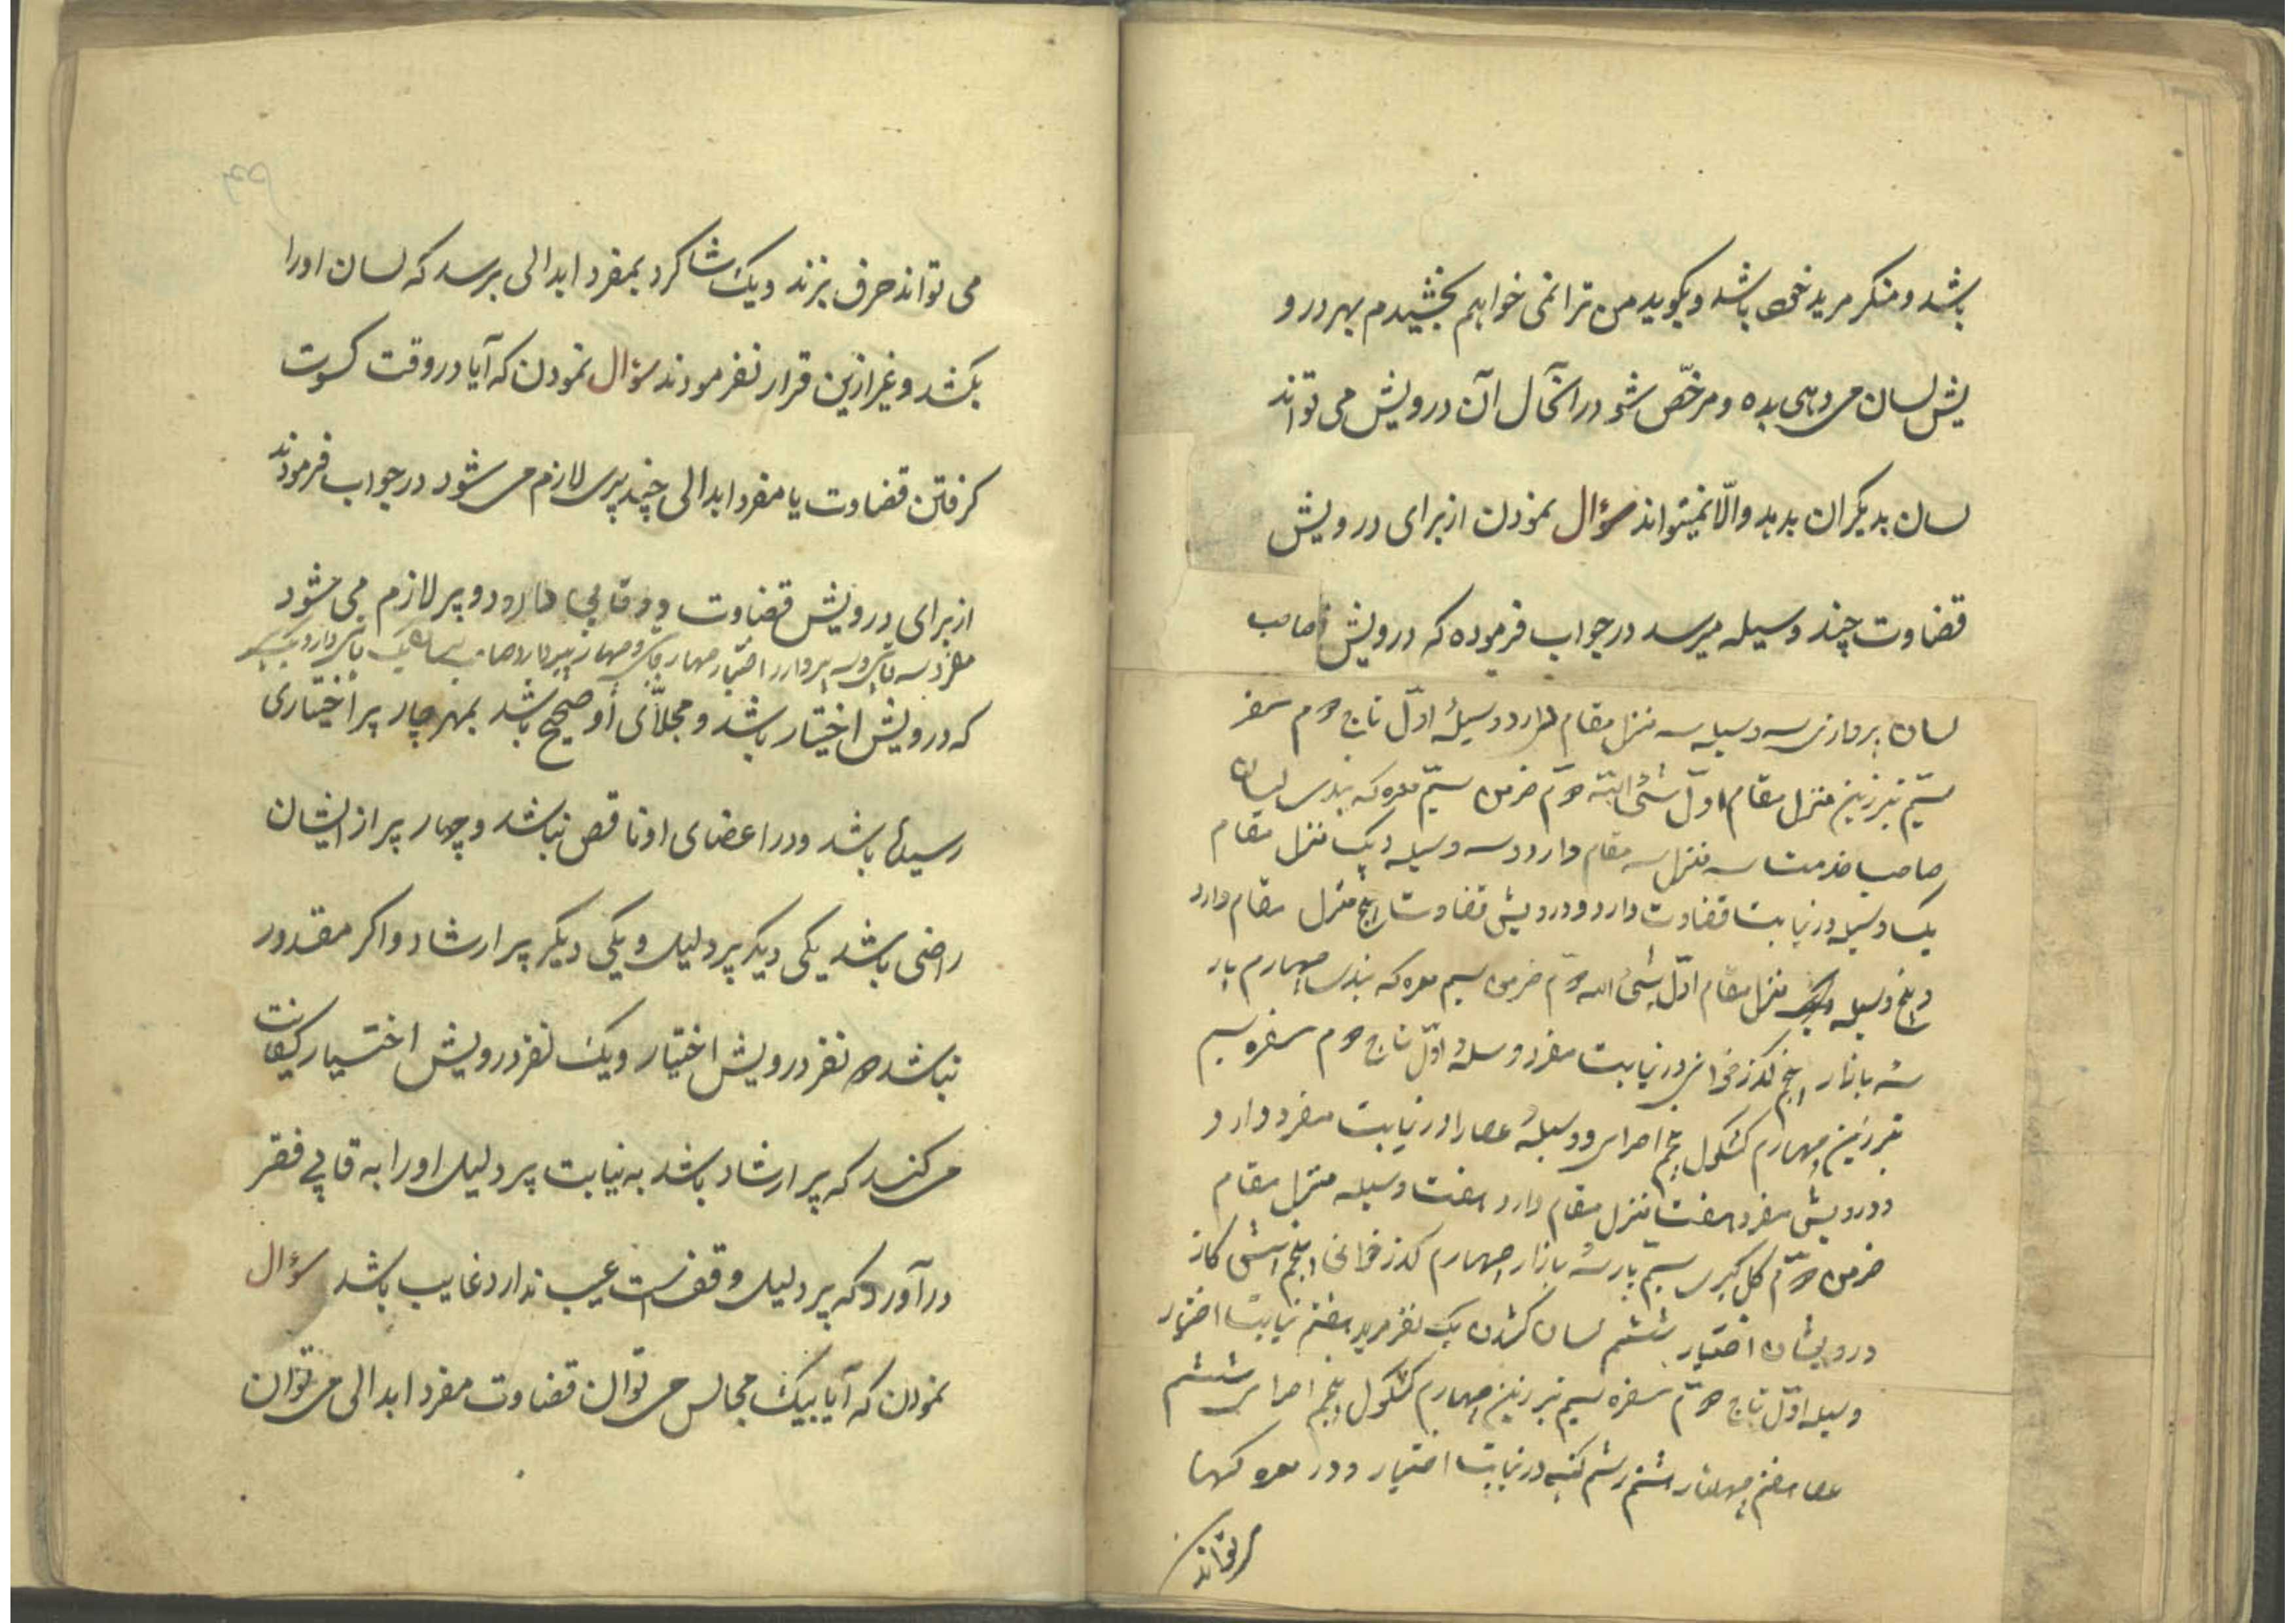 باشد و منکر مرید خود باشد و بکوید من ترا نمی خواهم بخشیدم بهر درو
یش لسان می دهی بده و مرخّص شو در انحال آن درویش می تواند
لسان بدیکران بدهد والّا نمیتواند سؤال نمودن از برای درویش
قضاوت چند وسیله میرسد در جواب فرموده که درویش صاحب
لسان سه وسیله سه منزل مقام دارد وسیلهٔ اوّل تاج دوم سفره
سیّم تبرزین منزل مقام اوّل دوّم خرمن سیّم معرکه بندی لسان
صاحب خدمت سه منزل سه مقام دارد و سه وسیله و یک منزل مقام
یک وسیله در نیابت قضاوت دارد و درویش قضاوت پنج منزل مقام دارد
و پنج وسیله منزل مقام اوّل دوّم خرمن سیم معرکه بندی چهارم پار
سه بازار پنجم کذرخوانی در نیابت مفرد وسیلهٔ اوّل تاج دوم سفره سیم
تبرزین چهارم کشکول پنجم و وسیلهٔ عصا را در نیابت مفرد دارد
و درویش مفرد هفت منزل مقام دارد هفت وسیله منزل مقام
خرمن دوّم کل کیری سیم پارسهٔ بازار چهارم کذرخوانی پنجم
درویشان اختیار ششم لسان کشدن یک نفر مرید هفتم نیابت اختیار
وسیله اوّل تاج دوّم سفره سیم تبرزین چهارم کشکول پنجم ششم
عصا هفتم هشتم در نیابت اختیار و در معرکهها
می تواند
می تواند حرف بزند و یک شاکرد بمفرد ابدالی برسد که لسان اورا
بکشد و غیر ازین قرار نفرمودند سؤال نمودن که آیا در وقت کسوت
کرفتن قضاوت یا مفرد ابدالی چند پیری لازم می شود در جواب فرمودند
از برای درویش قضاوت دو قاپی دارد و دو پیر لازم می شود
مفرد سه قاپی و سه پیر دارد اختیار چهار قاپی و چهار پیر دارد صاحب یک قاپی دارد و یک پیر
که درویش اختیار باشد و مجلّای او صحیح باشد بمهر چار پیر اختیاری
رسیدهٔ باشد و در اعضای او ناقص نباشد و چهار پیر از ایشان
راضی باشد یکی دیکر پیر دلیل و یکی دیکر پیر ارشاد و اکر مقدور
نباشد دو نفر درویش اختیار و یک نفر درویش اختیار کفایت
می کند که پیر ارشاد باشد به نیابت پیر دلیل اورا به قاپی فقر
درآورد که پیر دلیل وقفست عیب ندارد غایب باشد سؤال
نمودن که آیا بیک مجالس می توان قضاوت مفرد ابدالی می توان